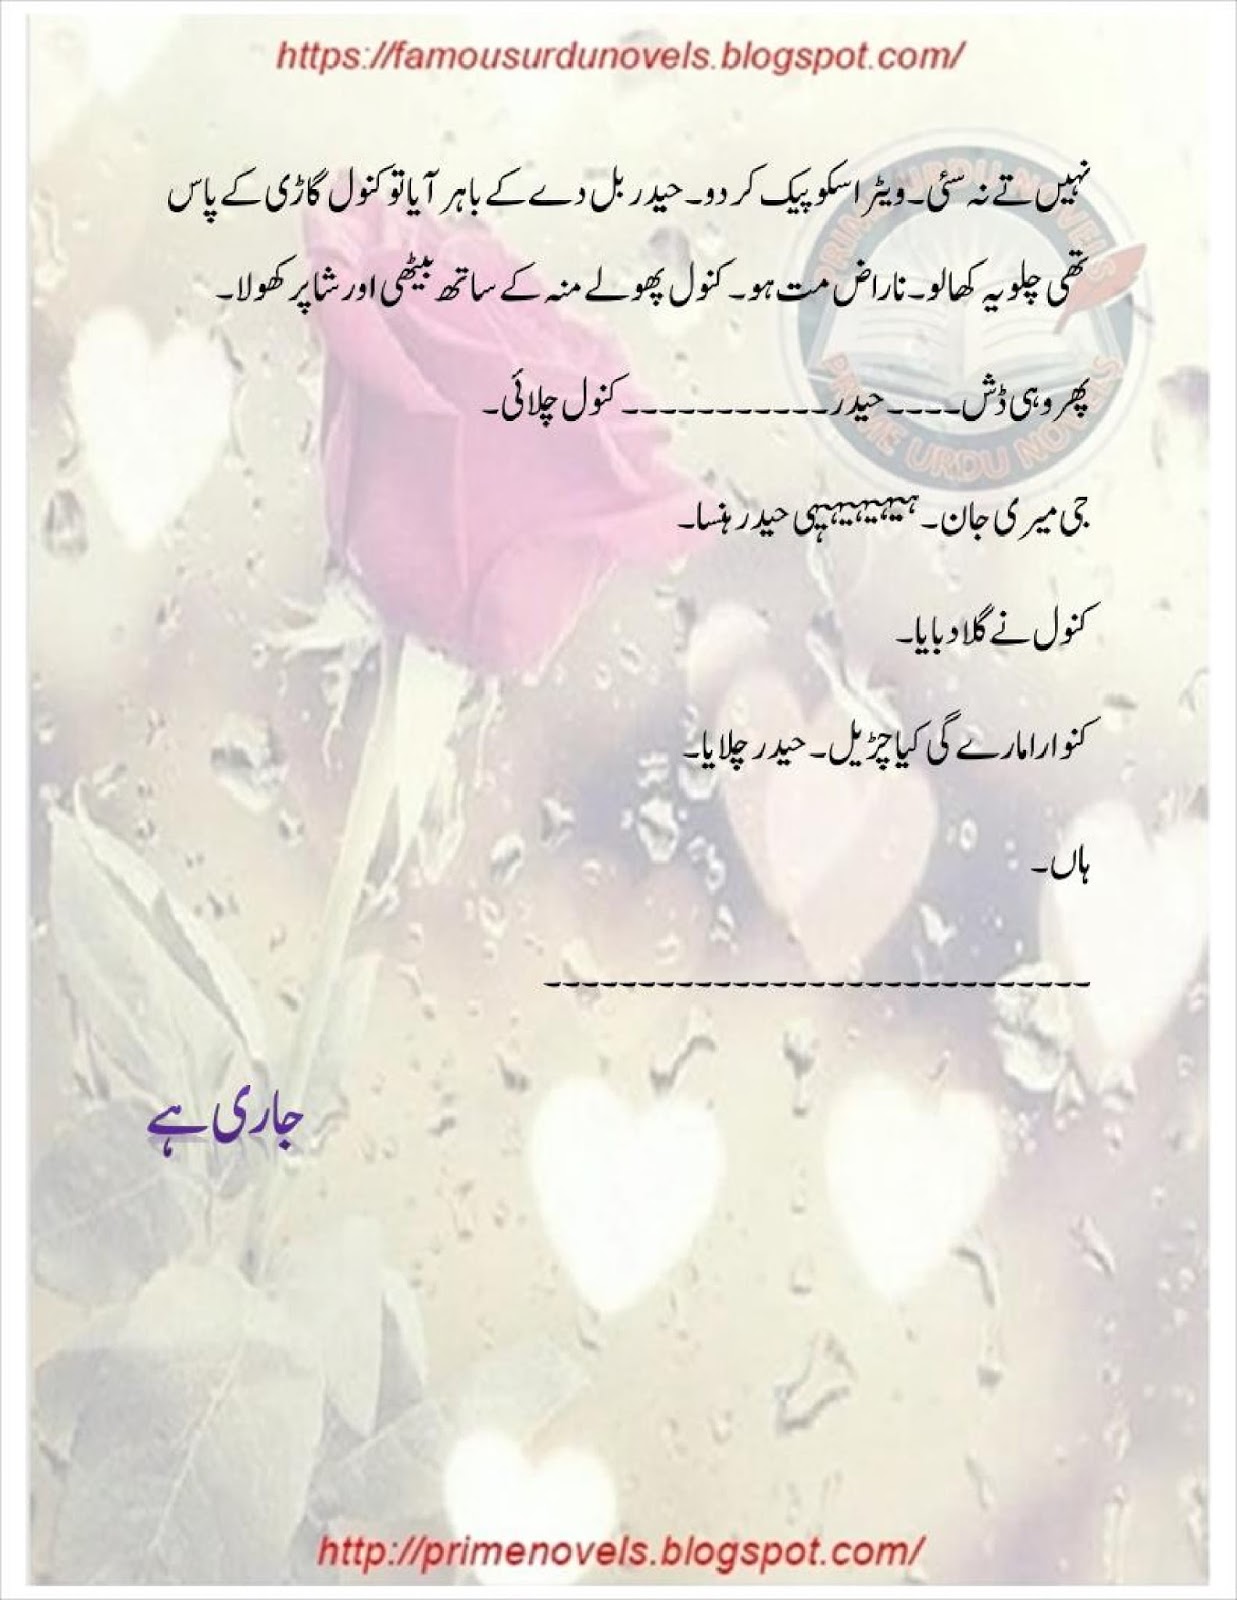 https://famousurdunovels.blogspot.com/
نہیں تے نہ سئی۔ ویٹر اسکو پیک کر دو۔ حیدر بل دے کے باہر آیا تو کنول گاڑی کے پاس
تھی چلو یہ کھا لو۔ ناراض مت ہو۔ کنول پھولے منہ کے ساتھ بیٹھی اور شاپر کھولا۔
پھر وہی ڈش۔۔۔۔ حیدر۔۔۔۔۔۔۔۔۔۔۔۔ کنول چلائی۔
جی میری جان۔ ہیہیہیہیہی حیدر ہنسا۔
کنول نے گلا دبایا۔
کنوارا مارے گی کیا چڑیل۔ حیدر چلایا۔
ہاں۔
۔۔۔۔۔۔۔۔۔۔۔۔۔۔۔۔۔۔۔۔۔۔۔۔۔۔۔۔۔۔
جاری ہے
PRIME URDU NOVELS
PRIME URDU NOVELS
http://primenovels.blogspot.com/